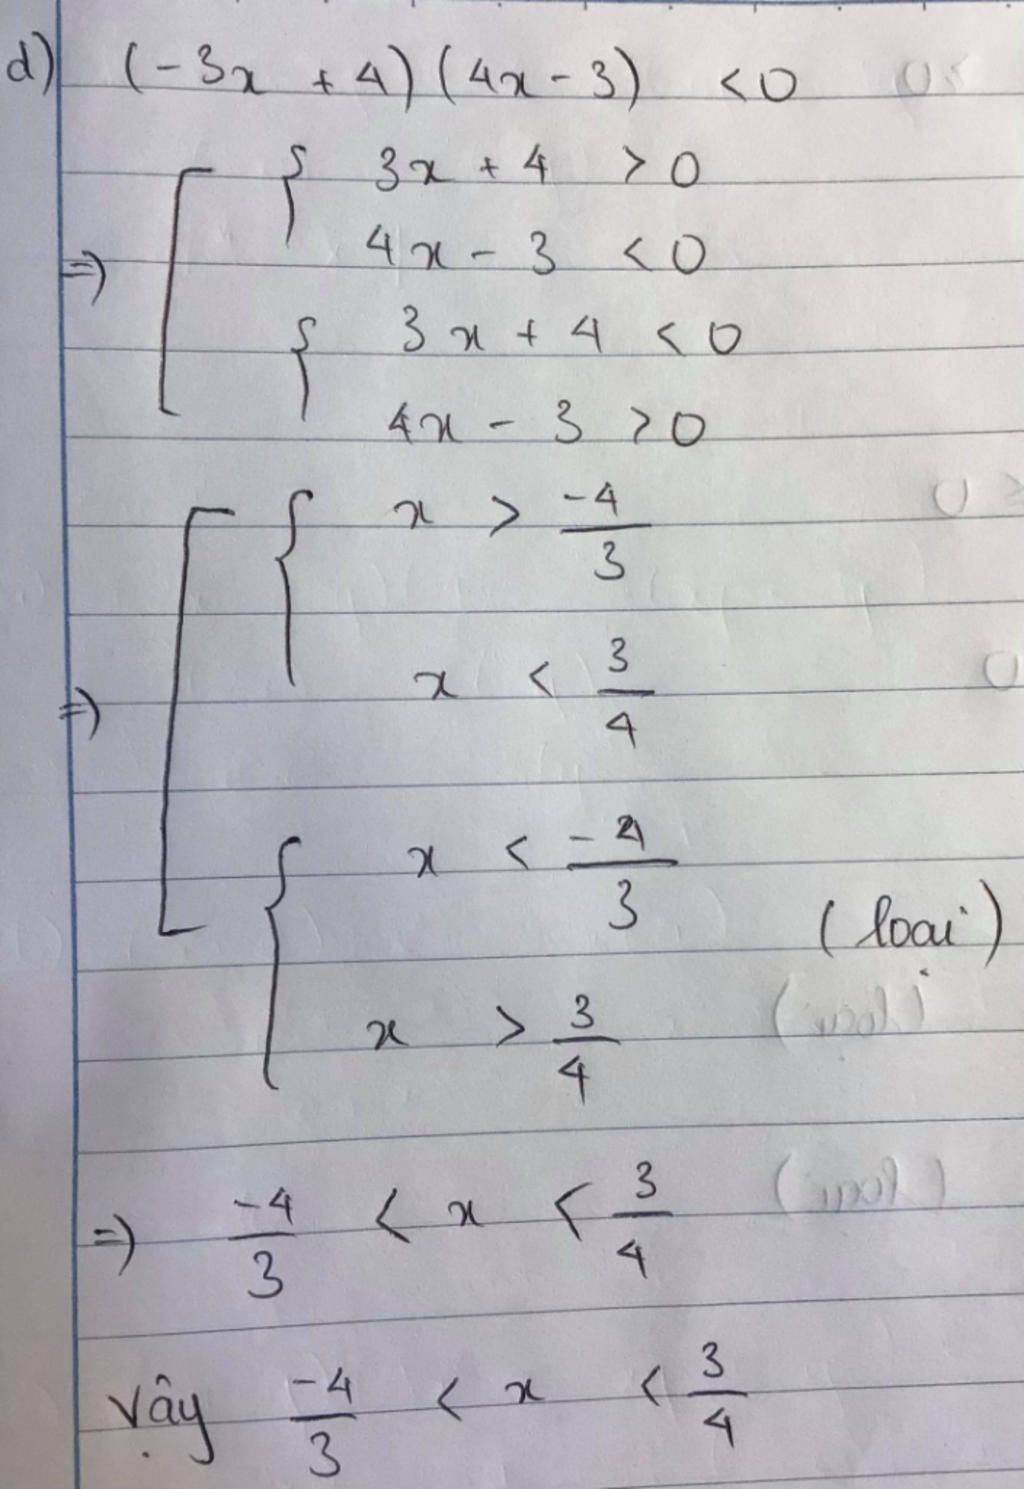 d) (-3x + 4)(4x - 3) < 0
=> [ { 3x + 4 > 0
4x - 3 < 0
{ 3x + 4 < 0
4x - 3 > 0
=> [ { x > -4/3
x < 3/4
{ x < -4/3
(loại)
x > 3/4
=> -4/3 < x < 3/4
Vậy -4/3 < x < 3/4